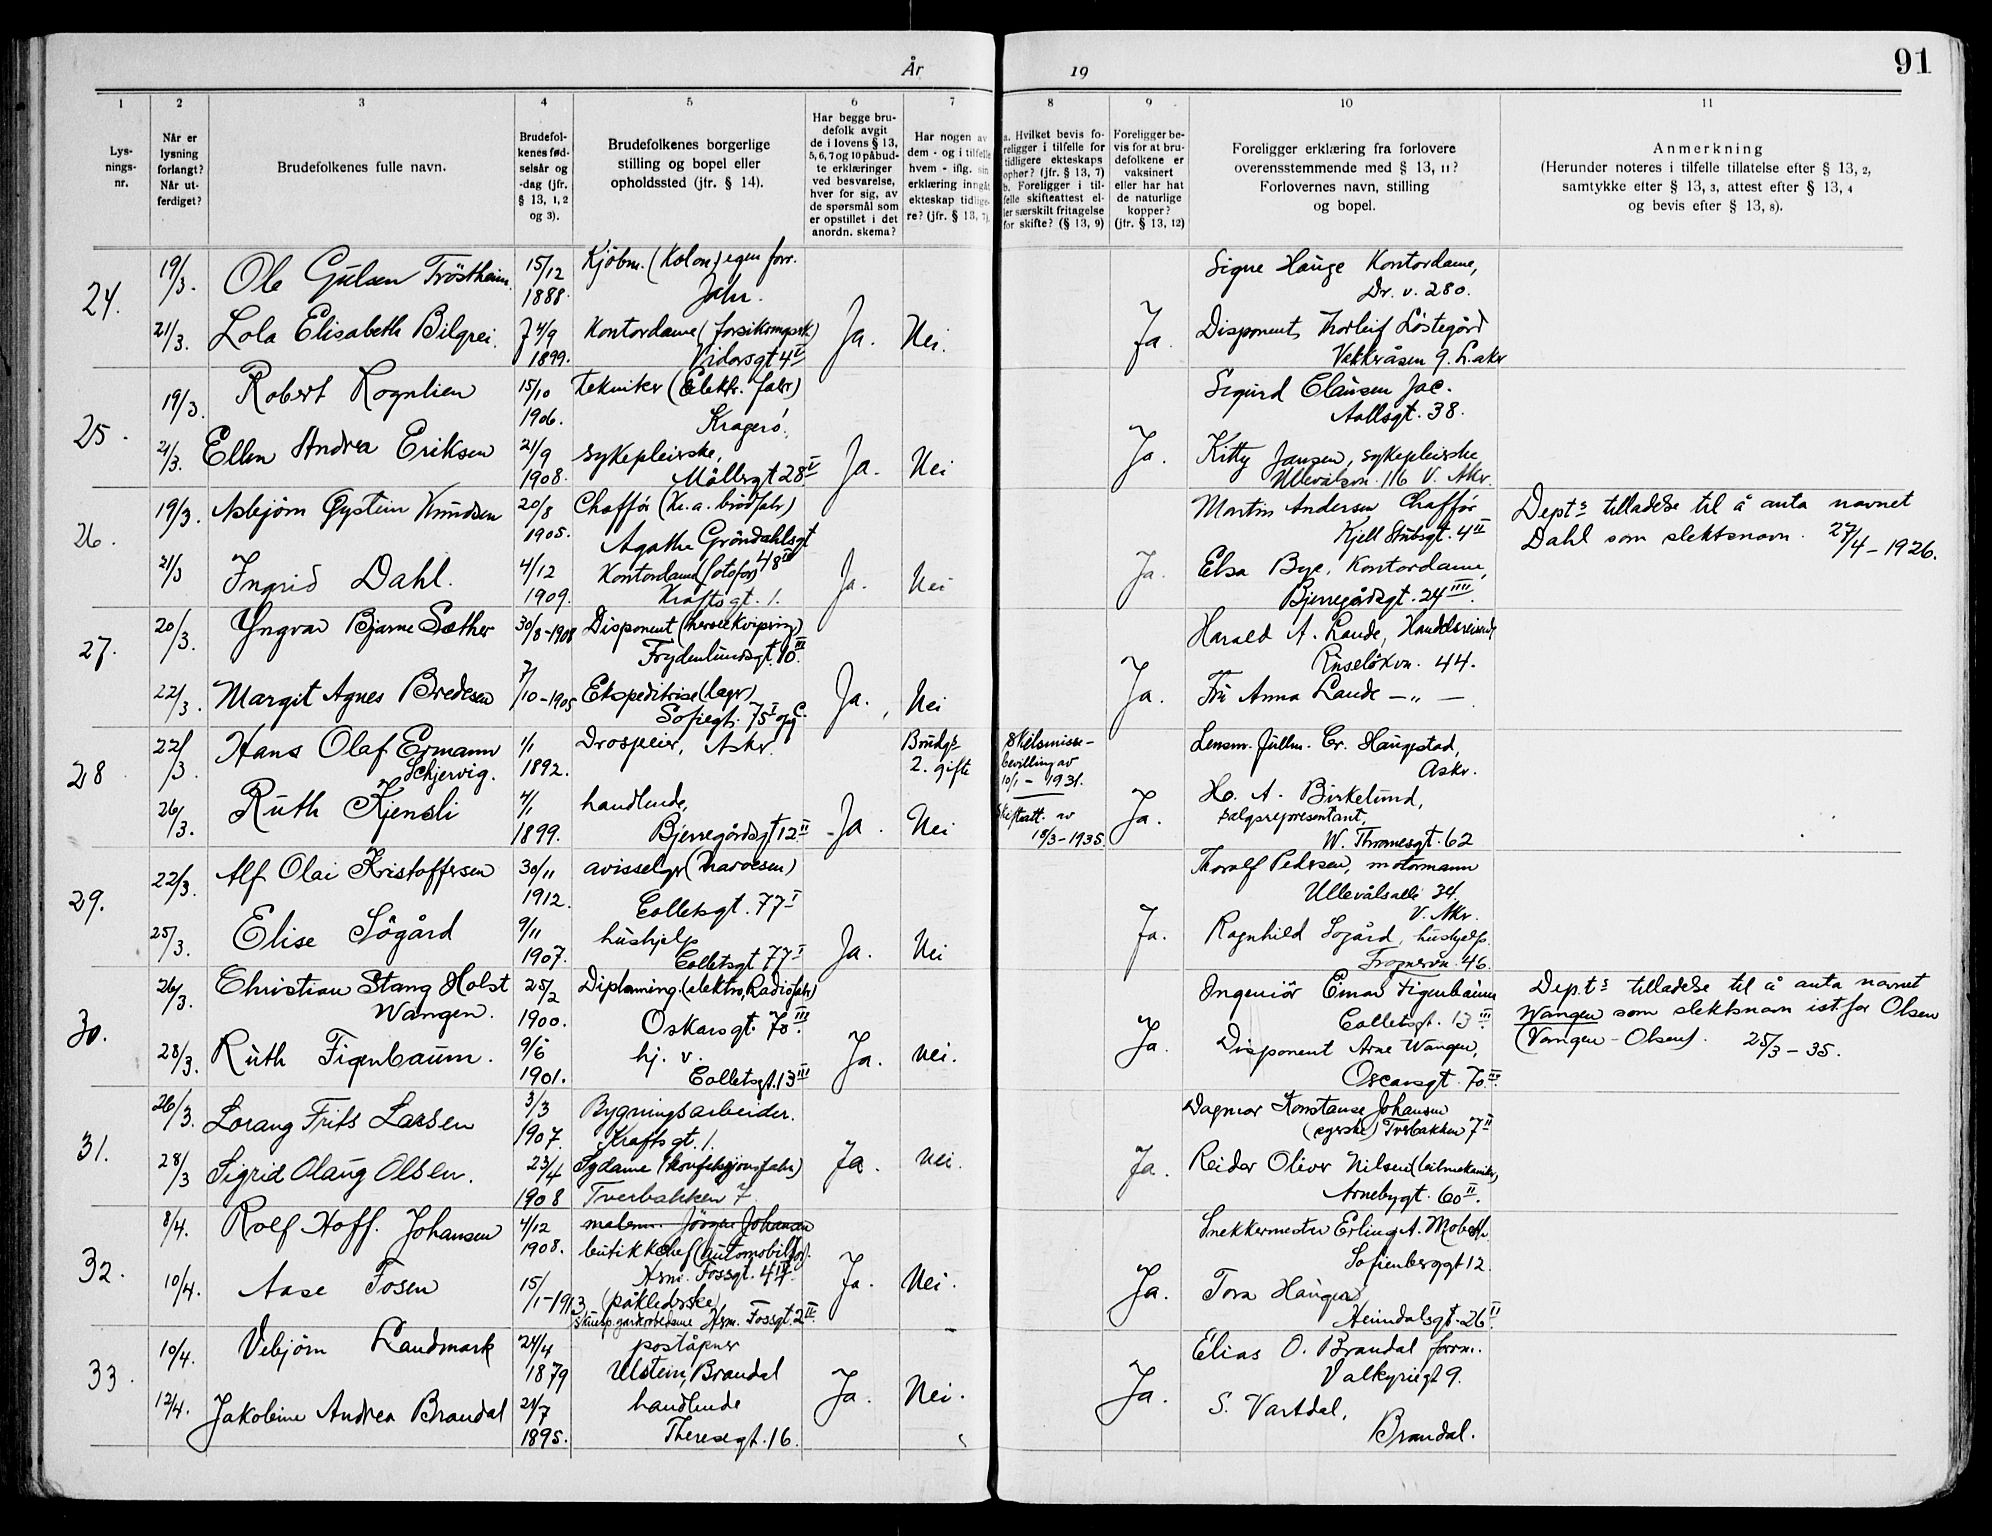 År
19
91
1
2
3
4
5
6
7
8
9
10
11
Lys-
nings-
nr.
Når er
lysning
forlangt?
Når ut-
ferdiget?
Brudefolkenes fulle navn.
Brudefol-
kenes fød-
selsår og
-dag (jfr.
§ 13, 1, 2
og 3).
Brudefolkenes borgerlige
stilling og bopel eller
opholdssted (jfr. § 14).
Har begge bru-
defolk avgit
de i lovens § 13,
5, 6, 7 og 10 påbud-
te erklæringer
ved besvarelse,
hver for sig, av
de spørsmål som
er opstillet i det
anordn. skema?
Har nogen av
dem - og i tilfelle
hvem - iflg. sin
erklæring inngåt
ekteskap tidlige-
re? (jfr. § 13, 7).
a. Hvilket bevis fo-
religger i tilfelle for
tidligere ekteskaps
ophør? (jfr. § 13, 7)
b. Foreligger i til-
felle skifteattest el-
ler særskilt fritagelse
for skifte? (§ 13, 9)
Foreligger be-
vis for at bru-
defolkene er
vaksinert
eller har hat
de naturlige
kopper?
(jfr. § 13, 12)
Foreligger erklæring fra forlovere
overensstemmende med § 13, 11?
Forlovernes navn, stilling
og bopel.
Anmerkning
(Herunder noteres i tilfelle tillatelse efter § 13, 2,
samtykke efter § 13, 3, attest efter § 13, 4
og bevis efter § 13, 8).
24.
19/3. Ole Gulsen Tröstheim. 15/12 1888. Kjøbm. (Kolon) egen forr.
Signe Hauge Kontordame,
Dr. v. 280.
21/3. Lola Elisabeth Bilgrei. 4/9 1899. Kontordame (forsikompsk)
Vidarsgt 4 II Ja. Nei. Ja. Disponent Thorleif Löstegård
Vekkeråsen 9. V. akr
25.
19/3. Robert Rognlien 15/10 1906. Tekniker (Elektr. fabr)
Kragerö.
Sigurd Clausen Jac.
Aallsgt. 38.
21/3. Ellen Andrea Eriksen 21/9 1908. sykepleierske,
Möllergt 28 V Ja. Nei Ja. Kitty Jansen, sykepleierske
Ullevålsvn. 116 V. Akr.
26.
19/3. Asbjörn Øystein Knudsen 20/8 1905. Chaffør (Kr. a. brödfabr)
Agathe Gröndahlsgt
48 III
Martin Andersen Chaffør
Kjell Stubsgt. 4 II
Dept s tilladelse til å anta navnet
Dahl som slektsnavn. 27/4 - 1926.
21/3 Ingrid Dahl. 4/12 1909. Kontordame (fotofor)
Kraftsgt. 1. Ja. Nei Ja. Elsa Bye, Kontordame,
Bjerregårdsgt. 24 IIII.
27.
20/3. Yngvar Bjarne Sæther 30/8-1908 Disponent (herreekvipring)
Frydenlundsgt. 10 III
Harald A. Lande, Handelsreisende
Ruseløkvn. 44.
22/3. Margit Agnes Bredesen 7/10-1905 Ekspeditrise (lagr)
Sofiegt. 75 I opg C. Ja. Nei Ja. Fru Anna Lande — " —
28
22/3. Hans Olaf Ermann
Schjervig. 1/1 1892. Drosjeeier, Askr.
Brudgs
2. gifte
Skilsmisse-
bevilling av
10/1 - 1931.
Skifteatt. av
18/3-1935.
Lensm. fullm. Cr. Haugestad,
Askr.
26/3. Ruth Kjensli 4/1 1899. handlende,
Bjerregårdsgt 12 II Ja. Nei Ja. Ho. A. Birkelund,
salgsrepresentant,
W. Thranesgt. 62
29.
22/3. Alf Olai Kristoffersen 30/11 1912. avisselgr (Narvesen)
Colletsgt. 77 I
Thoralf Pedersen, motormann
Ullevålsallé 34.
V. Akr.
25/3. Elise Sögård 9/11 1907. hushjelp
Colletsgt 77 I Ja. Nei Ja. Ragnhild Sogård, hushjelp.
Frognervn. 46.
30.
26/3. Christian Stang Holst
Wangen. 25/2 1900. Dipl.ming (elektro, Radiofabr)
Oskarsgt. 70 III.
Ingeniör Einar Figenbaum
Colletsgt. 13 III
Dep.t s tilladelse til å anta navnet
Wangen som slektsnavn istfor Olsen
(Vangen - Olsen). 25/3 - 35.
28/3. Ruth Figenbaum. 9/6 1901. hj. v.
Colletsgt. 13 III Ja. nei. Ja. Disponent Arne Wangen,
Oscarsgt. 70 III
31.
26/3. Lorang Frits Larsen 3/3 1907. Bygningsarbeider.
Kraftsgt. 1.
Dagmar Konstanse Johansen
(syerske) Tverbakken 7 II
28/3 Sigrid Olaug Olsen. 23/4 1908 Sydame (konfeksjonsfabr)
Tverbakken 7. Ja. Nei. Ja. Reidar Oliver Nilsen (bilmekaniker,
Arnebygt. 60 II.
32.
8/4. Rolf Hoff. Johansen 4/12 1908. malerm. Jörgen Johansen
butikkchef (automobilfor).
Hrm. Fossgt. 4 IV.
Snekkermester Erling A. Mobech
Sofienberggt 12.
10/4. Aase Fosen 15/1-1913 (påklederske)
Skuesp. garderobedame Hrm. Fossgt. 2 II. Ja. Nei. Ja. Tora Haugen
Heimdalsgt. 26 II.
33.
10/4. Vebjörn Landmark 24/4 1879 poståpner
Ulstein, Brandal
Elias O. Brandal forrm.
Valkyriegt 9.
12/4. Jakobine Andrea Brandal 21/7 1895. handlende
Theresegt. 16. Ja. Nei. Ja. S. Vartdal,
Brandal.